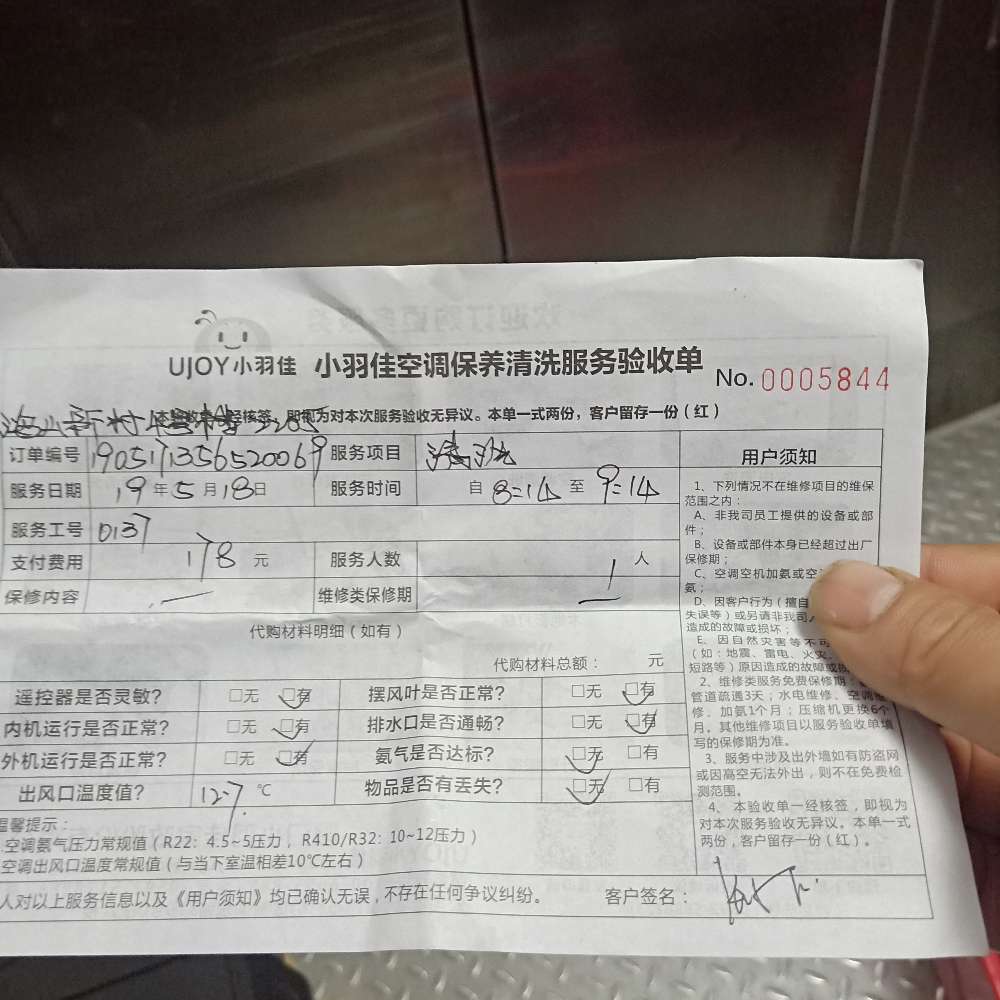 UJOY小羽佳 小羽佳空调保养清洗服务验收单 No. 0005844
本验收单一经核签，即视为对本次服务验收无异议。本单一式两份，客户留存一份（红）
订单编号 1905171356520069 服务项目 清洗
服务日期 19年5月18日 服务时间 自 8:14 至 9:14
服务工号 0137
支付费用 178 元 服务人数 1 人
保修内容 — 维修类保修期 —
代购材料明细（如有）
代购材料总额： 元
遥控器是否灵敏? □无 □有 摆风叶是否正常? □无 □有
内机运行是否正常? □无 □有 排水口是否通畅? □无 □有
外机运行是否正常? □无 □有 氨气是否达标? □无 □有
出风口温度值? 12.7 ℃ 物品是否有丢失? □无 □有
温馨提示：
空调氨气压力常规值（R22: 4.5~5压力， R410/R32: 10~12压力）
空调出风口温度常规值（与当下室温相差10℃左右）
人对以上服务信息以及《用户须知》均已确认无误，不存在任何争议纠纷。 客户签名：
用户须知
1、下列情况不在维修项目的维保
范围之内：
A、非我司员工提供的设备或部
件；
B、设备或部件本身已经超过出厂
保修期；
C、空调空机加氨或空
氨；
D、因客户行为（擅自
失误等）或另请非我司
造成的故障或损坏；
E、因自然灾害等不可
（如：地震、雷电、火灾、
短路等）原因造成的故障或损
2、维修类服务免费保修期：
管道疏通3天；水电维修、空调维
修、加氨1个月；压缩机更换6个
月。其他维修项目以服务验收单填
写的保修期为准。
3、服务中涉及出外墙如有防盗网
或因高空无法外出，则不在免费检
测范围。
4、本验收单一经核签，即视为
对本次服务验收无异议。本单一式
两份，客户留存一份（红）。